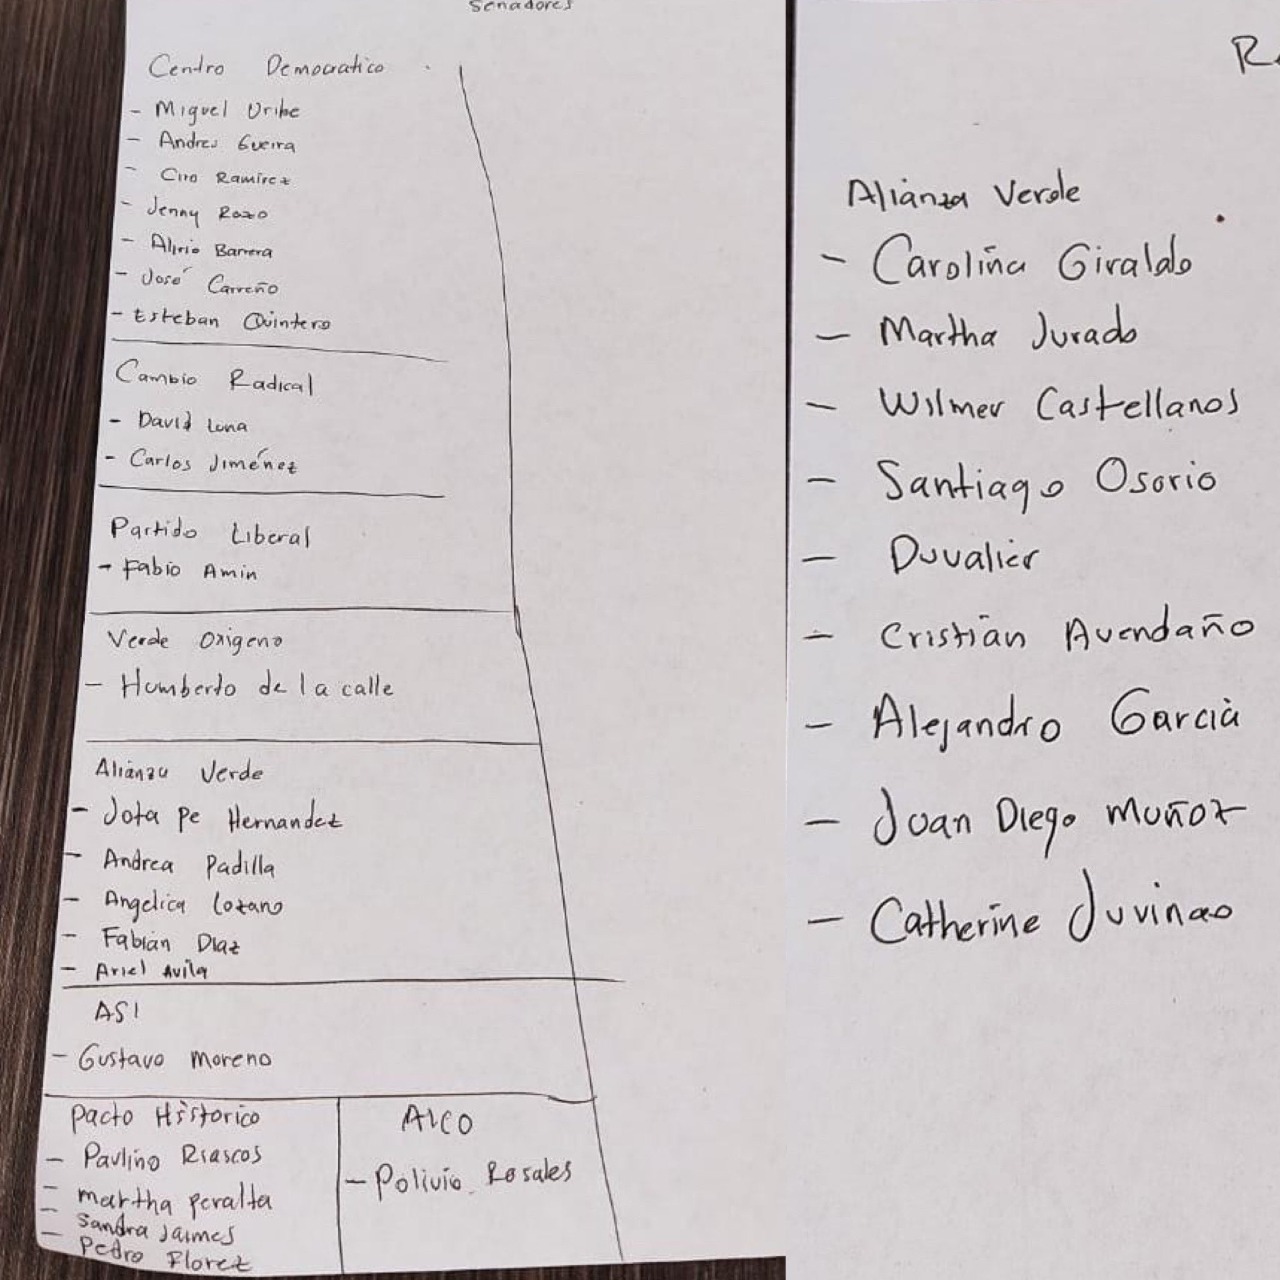 Senadores
Centro Democratico
- Miguel Uribe
- Andres Guerra
- Ciro Ramirez
- Jenny Rozo
- Alirio Barrera
- José Carreño
- Esteban Quintero
Cambio Radical
- David Luna
- Carlos Jiménez
Partido Liberal
- Fabio Amin
Verde Oxigeno
- Humberto de la calle
Alianza Verde
- Jota Pe Hernandez
- Andrea Padilla
- Angelica Lozano
- Fabián Díaz
- Ariel Avila
ASI
- Gustavo Moreno
Pacto Historico
- Paulino Riascos
- Martha Peralta
- Sandra Jaimes
- Pedro Florez
AICO
- Polivio Rosales
Alianza Verde
- Carolina Giraldo
- Martha Jurado
- Wilmer Castellanos
- Santiago Osorio
- Duvalier
- Cristian Avendaño
- Alejandro García
- Juan Diego Muñoz
- Catherine Juvinao